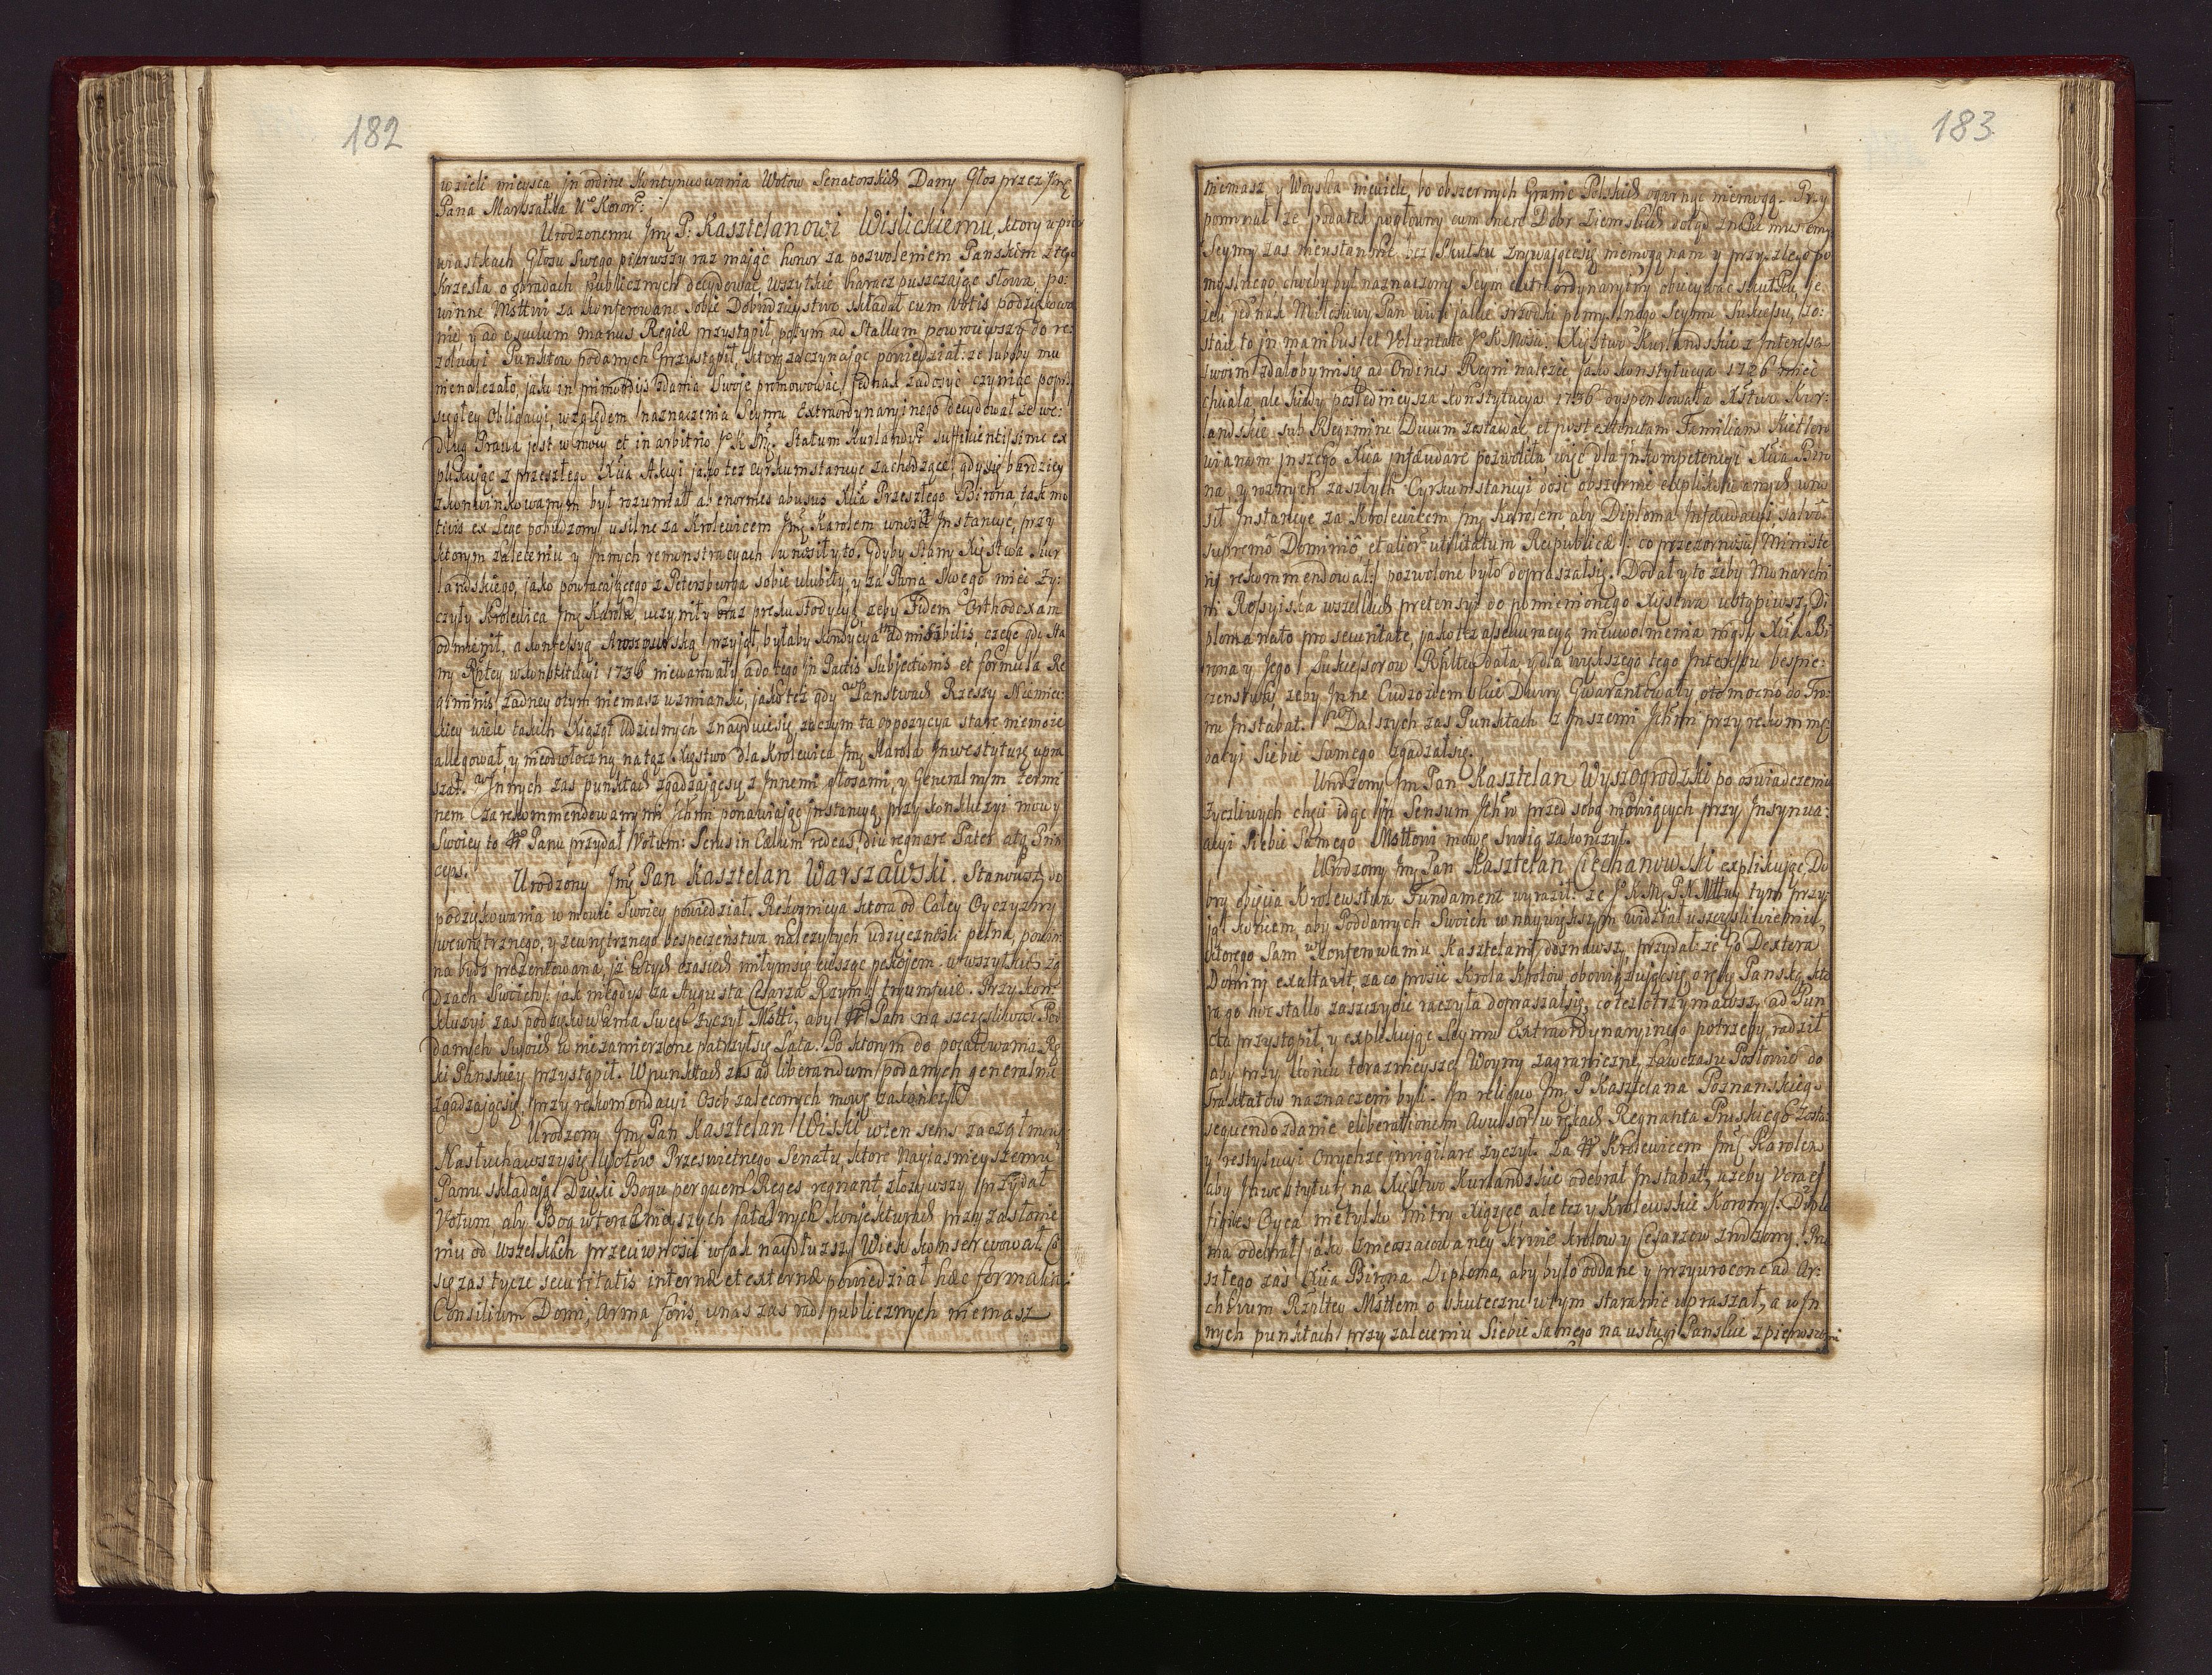 182
wzieli mieysca in ordine kontynuowania Wotow Senatorskich Dany Głos przez Jmę
Pana Marszałka Wo Koronr:
Urodzonemu Jmę P: Kasztelanowi Wislickiemu, ktory w pier
wiastkach Głosu Swego pierwszy raz maiąc honor za pozwoleniem Panskim z tego
Krzesła o obradach publicznych decydować, wszytkie haracz puszczając słowa, po:
winne Msttwi za konferowane sobie Dobrodzieystwo składał cum Votis podziękowa
nie, y ad osculum manus Regiæ przystąpił, potym ad Stallum powrociwszy do re:
zolucyi Punktow podanych przystąpił, ktorą zaczynając powiedział: ze lubby mu
nienalezało, jako in primordys zdania Swoje promowować, jednak zadosyć czyniąc poprzy
sięgłey Obligacyi, względem naznaczenia Seymu Extraordynaryinego decydował ze we:
dług Prawa jest w mocy et in arbitrio Jo K Mc. Statum Kurlandyi sufficientissime ex
plikując z przeszłego Xcia Akcyi jako tez cyrkumstancye zachodzące, gdy się bardziey
zkonwinkowanym był rozumiał ab enormes abusus Xcia Przeszłego Birona, tak mo
tivis ex Lege pobudzony usilne za Krolewicem Jmę Karolem wnosił Instancye, przy
ktorym zaleceniu y innych remonstracyach wnosił y to. Gdyby Stany Xięstwa Kur
landskiego, jako powracającego z Petersburka sobie ulubiły, y za Pana Swego mieć zy:
czyły Krolewica Jmę Karola, uczyniły oraz prekustodycyę, zeby Fidem Orthodoxam
odmienił, a konfessyą Awszpurską przyjął, byłaby kondycya admissibilis, czego gdy Sta
ny Rptey w konstitucyi 1736 niewarowały, a do tego in Pactis Subjectionis, et formula Re
giminis zadney o tym niemasz wzmianki, jako tez gdy w Panstwach Rzeszy Niemiec:
kiey wiele takich Xiążąt udzielnych znayduie się, zaczym ta oppozycya stać niemoze
allegował, y nieodwłoczną na toz Xięstwo dla Krolewica Jmę Karola Inwestyturę upra
szał. W Innych zas punktach zgadzającsię z Innemi głosami, y Generalnym termi
nem za rekommendowanymi Ichmi ponawiając instancyą, przy konkluzyi mowy
Swoiey to Panu przydał Votum: Serus in Cælum redeas, diu regnare Pater atq Prin
ceps.
Urodzony Jmę Pan Kasztelan Warszawski. Stanowszy do
podziękowania w mowie Swoiey powiedział. Rekognicya ktora od Całey Oyczyzny
wewnętrznego, y zewnętrznego bespeczeństwa nalezytych wdzięcznosci pełna, powin
na bydz prezentowana, iz w tych czasiech miłym się ciesząc pokojem w wszytkich zą
dzach Swoich, jak niegdys za Augusta Cesarza Rzym tryumfuie. Przy kon:
kluzyi zas podziękowania Swego zyczył Mstti, aby Pan na szczęsliwosć Pod
danych Swoich w niezamierzone patrzył się Lata. Po ktorym do pocałowania Rę
ki Panskiey przystąpił. W punktach zas ad liberandum podanych generalnie
zgadzającsię przy rekomendacyi Osob zaleconych mowę zakonczył.
Urodzony Jmę Pan Kasztelan Wiski w ten sens zaczął mowę
Nasłuchawszy się Wotow Przeswietnego Senatu, ktore Nayiasnieyszemu
Panu składają Dzięki Bogu per quem Reges regnant, złozywszy przydał
Votum, aby Bog w teraznieyszych fatalnych konjekturach przy zasłonie
niu od wszelkich przeciwnosci w jak naydłuzszy Wiek konserwował Co
się zas tycze securitatis internæ et externæ powiedział hæc formalia:
Consilium Domi, arma foris, u nas zas rad publicznych niemasz
183
niemasz y Woyska niewiele, bo obszernych Granic Polskich ogarnąc niemogą. Przy
pomniał ze podatek pogłowny cum onere Dobr Ziemskich dotąd znosić musiemy
Seymy zas nieustannie bez Skutku zrywającesię niemogą nam y przyszłego po
myslnego chocby był naznaczony Seym extraordynaryiny obiecywać skutku, je
zeli jednak Miłosciwy Pan widzi jakie srzodki pomyslnego Seymu Sukcessu, zo:
staie to in manibus et Voluntate Jo K Mosci. Xięstwo Kurlandskie z Interessa
swoim zdałobymisię ad Ordines Regni nalezec jako konstytucya 1726 mieć
chciała, ale kiedy posledniejsza konstytucya 1736 dyspensowała Xstwo Kur:
landskie sub Regimine Ducum zostawać, et post extinctam Familiam Kietler
wianam inszego Xcia infeudare pozwoliła, więc dla inkompetencyi Xcia Biro
na, y roznych zaszłych Cyrkumstancyi dosć obszernie explikowanych wno
sił Instancye za Krolewicem Jmę Karolem aby Diploma Infeudacyi, salvo
supremo Dominio, et alior utilitatum Reipublicæ /: co przezornosci Ministe
rii rekommendował:/ pozwolone było dopraszałsię. Dodał y to zeby Monarchi
ni Rossyiska wszelkich pretensyi do pomienionego Xięstwa ustąpiwszy Di
ploma na to pro securitate, jako tez assekuracyą nieuwolnienia nigdy Xcia Bi
rona y Jego Sukcessorow Rzpltey dała y dla wyzszego tego Interessu bespie:
czenstwa, zeby Inne Cudzoziemskie Dwory Gwarantowały, o to mocno do Tro:
nu Instabat. W Dalszych zas Punktach z Inszemi Ichmi przy rekommę
dacyi Siebie Samego zgadzałsię.
Urodzony Jm Pan Kasztelan Wyszogrodzki po oswiadczeniu
zyczliwych chęci idąc in Sensum Ichmw przed sobą mowiących przy Insynua:
acyi Siebie Samego Msttowi mowę Swoię zakonczył.
Urodzony Jmę Pan Kasztelan Ciechanowski explikując Do
bry obięcia Krolewstwa Fundament wyraził: ze Jo K Mc P N Mttwy tym przy:
jął koncem, aby Poddanych Swoich w naywiększym widział uszczęsliwieniu,
ktorego Sam w konferowaniu Kasztelanii doznawszy, przydał: ze Go Dextera
Domini exaltavit, za co prosić Krola Krolow obowiązującsię, o rękę Panską, kto
ra go hoc stallo zaszczycic raczyła dopraszał się, co tez otrzymawszy, ad Pun
cta przystąpił, y explikując Seymu Extraordynaryinego potrzebę, radził
aby przy koncu terazniejszey Woyny zagraniczney zawczasu Posłowie do
Traktatow naznaczeni byli. In reliquo Jmę P Kasztelana Poznanskiego
sequendo zdanie eliberationem Awulsow w rękach Regnanta Pruskiego zosta:
y restytucyi Onychze invigilare zyczył. Za Krolewicem Jmę Karolem
aby Inwestyturę na Xięstwo Kurlandskie odebrał Instabat, u zeby Vera ef
figies Oyca nietylko mitry Xiązęce ale tez y Krolewskie Korony /: Diplo
ma odebrał / jako z nieoszacowaney krwie krolow y Cesarzow zrodzony. Prze
szłego zas Xcia Birona Diploma, aby było oddane y przywrocone ad Ar:
chivum Rzpltey Msttem o skuteczne w tym staranie upraszał, a w In
nych punktach przy zaleceniu Siebie samego na usługi Panskie z pierwszymi